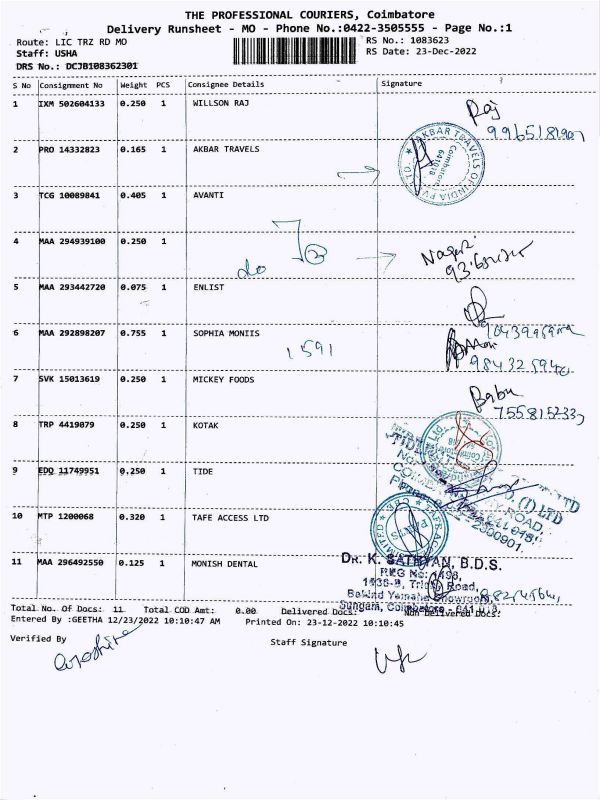 THE PROFESSIONAL COURIERS, Coimbatore
Delivery Runsheet - MO - Phone No.:0422-3505555 - Page No.:1
Route: LIC TRZ RD MO
RS No.: 1083623
Staff: USHA
RS Date: 23-Dec-2022
DRS No.: DCJB108362301
S No Consignment No Weight PCS Consignee Details Signature
1 IXM 502604133 0.250 1 WILLSON RAJ
Raj
2 PRO 14332823 0.165 1 AKBAR TRAVELS
AKBAR TRAVELS OF INDIA PVT. LTD.
Coimbatore
641018
3 TCG 10089841 0.405 1 AVANTI
4 MAA 294939100 0.250 1
do
5 MAA 293442720 0.075 1 ENLIST
6 MAA 292898207 0.755 1 SOPHIA MONIIS
1591
7 SVK 15013619 0.250 1 MICKEY FOODS
Babu
8 TRP 4419079 0.250 1 KOTAK
9 EDQ 11749951 0.250 1 TIDE
10 MTP 1200068 0.320 1 TAFE ACCESS LTD
11 MAA 296492550 0.125 1 MONISH DENTAL
DR. K. SATHYAN, B.D.S.
REG No: 1498,
Behind Yamaha Showroom,
Sungam, Coimbatore - 641 018.
Total No. Of Docs: 11 Total COD Amt: 0.00 Delivered Docs: Non Delivered Docs:
Entered By :GEETHA 12/23/2022 10:10:47 AM Printed On: 23-12-2022 10:10:45
Verified By Staff Signature